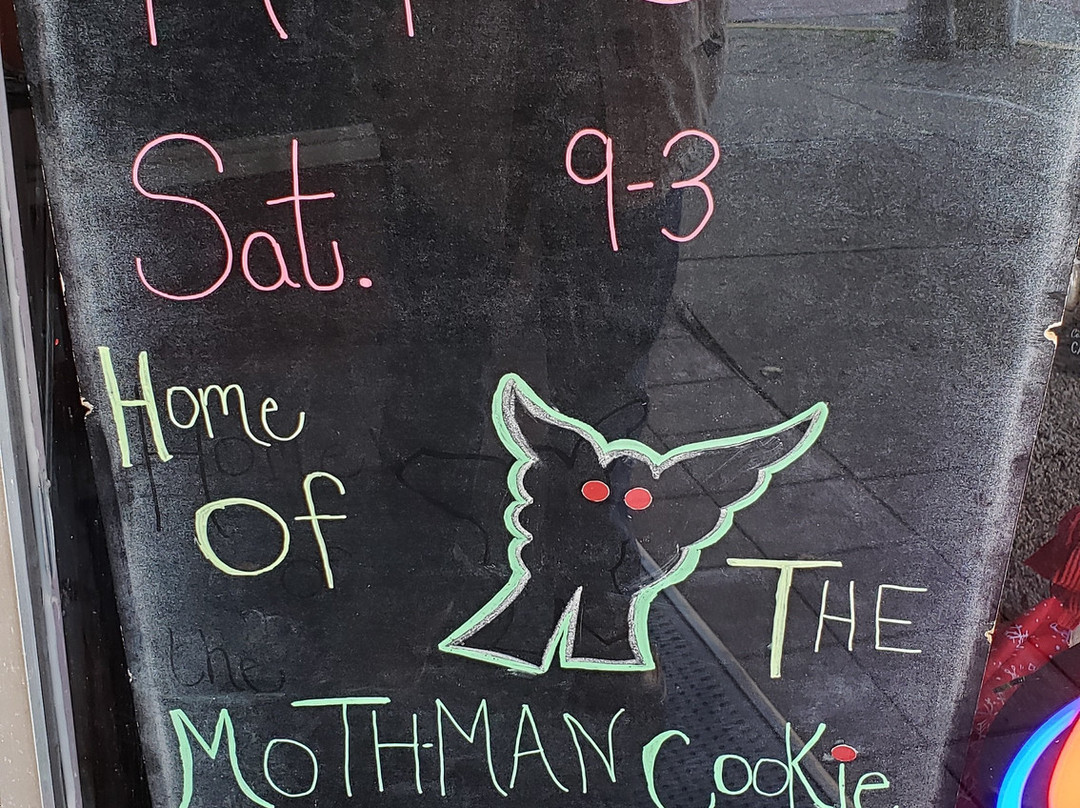 Sat. 9-3
Home
Of
THE
MOTHMAN Cookie